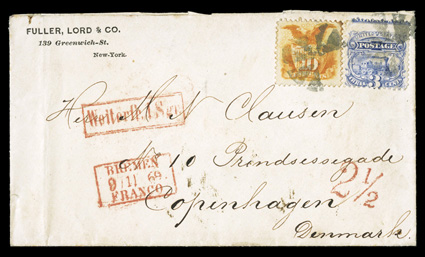 FULLER, LORD & CO.
139 Greenwich-St.
New-York.
POSTAGE
Herr H N Clausen
BREMEN
9 11 69
FRANCO
No 10 Prindsessegade
2 1/2
Copenhagen
Denmark.